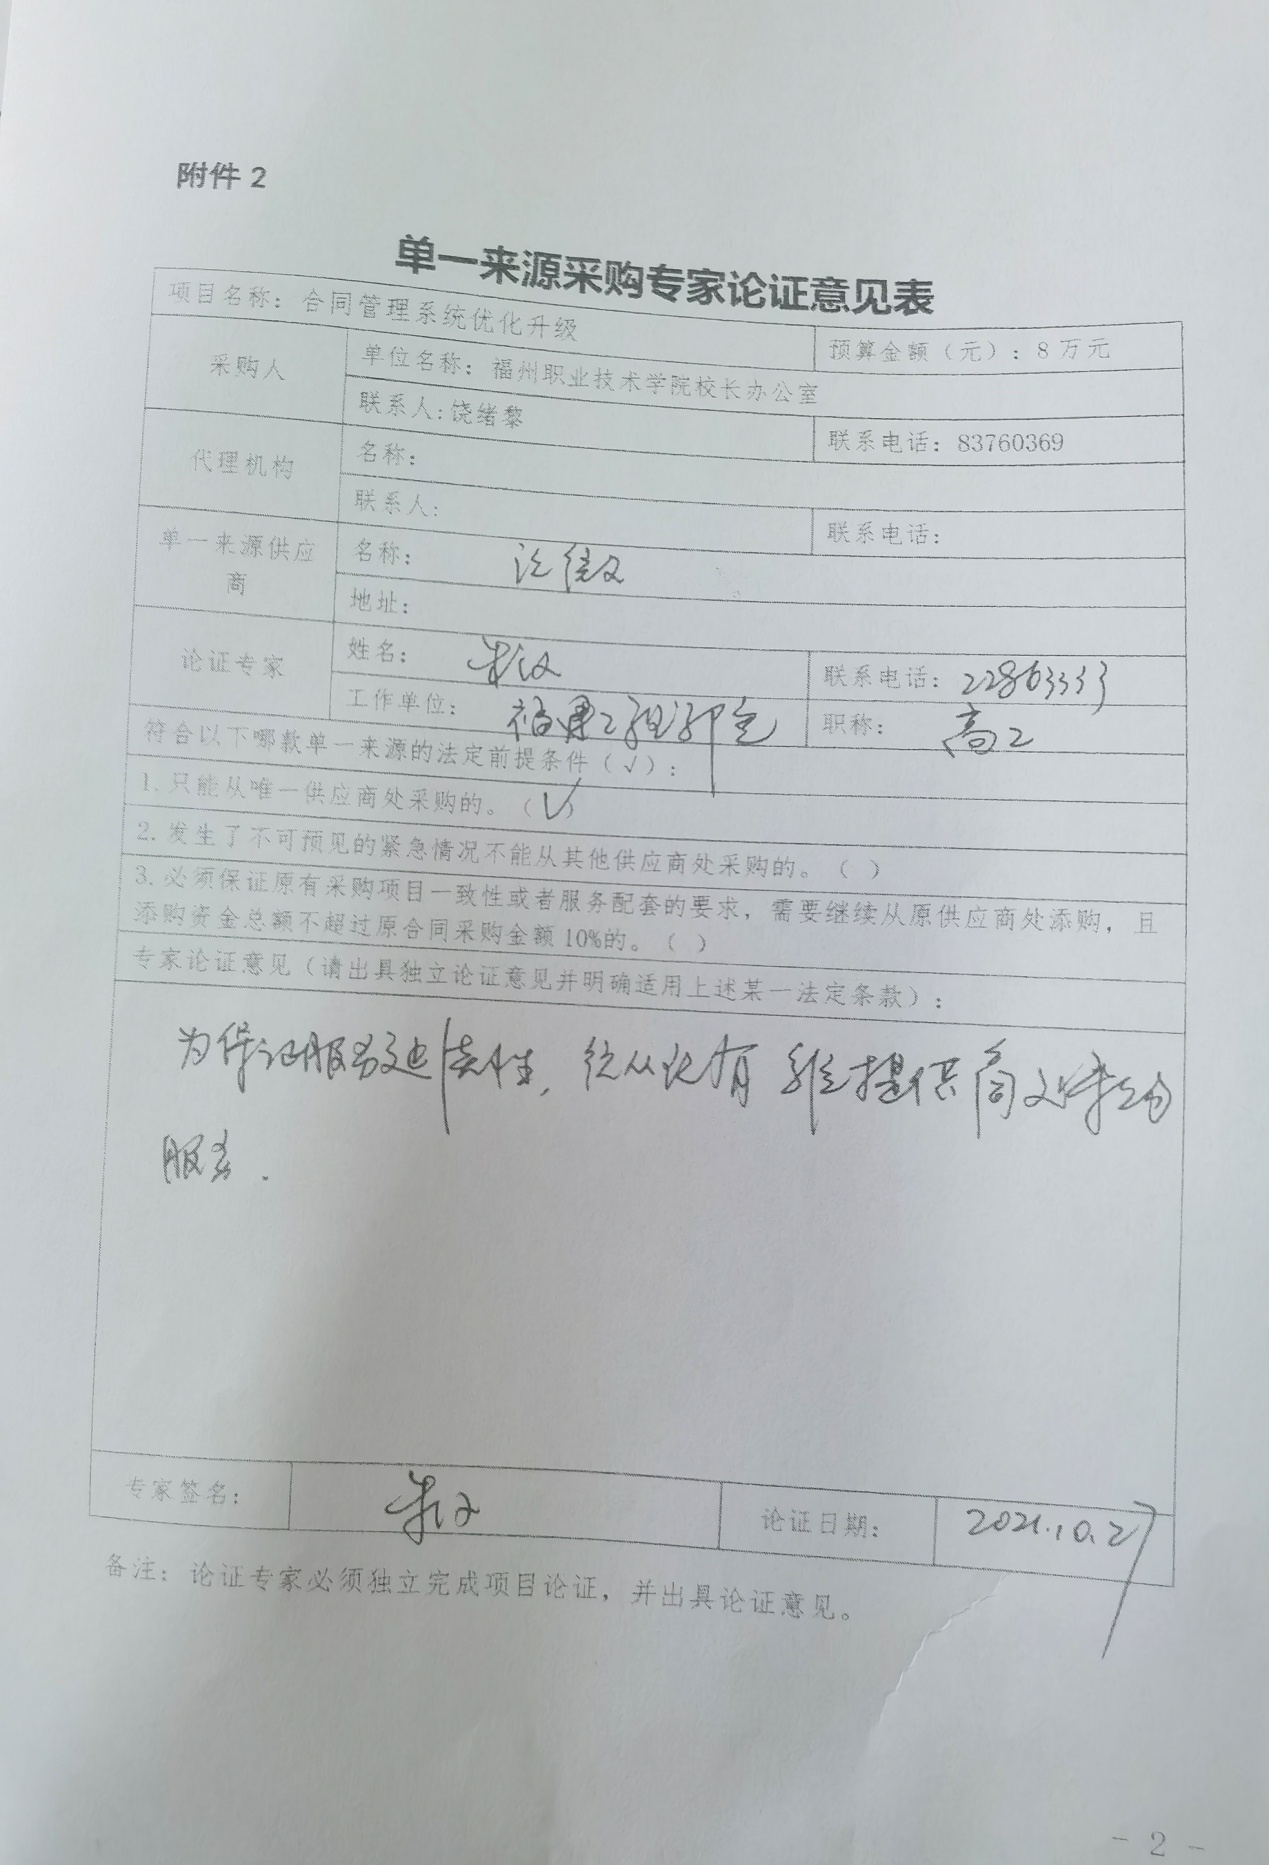 附件 2
单一来源采购专家论证意见表
项目名称：合同管理系统优化升级
预算金额（元）：8 万元
采购人
单位名称：福州职业技术学院校长办公室
联系人：饶绪黎
联系电话：83760369
代理机构
名称：
联系人：
联系电话：
单一来源供应
商
名称：
地址：
论证专家
姓名：
联系电话：22863333
工作单位：福建工程
职称：高工
符合以下哪款单一来源的法定前提条件（√）：
1. 只能从唯一供应商处采购的。（√）
2. 发生了不可预见的紧急情况不能从其他供应商处采购的。（ ）
3. 必须保证原有采购项目一致性或者服务配套的要求，需要继续从原供应商处添购，且
添购资金总额不超过原合同采购金额 10%的。（ ）
专家论证意见（请出具独立论证意见并明确适用上述某一法定条款）：
为保证服务 提供商
服务.
专家签名：
论证日期：
2021.10.27
备注：论证专家必须独立完成项目论证，并出具论证意见。
- 2 -